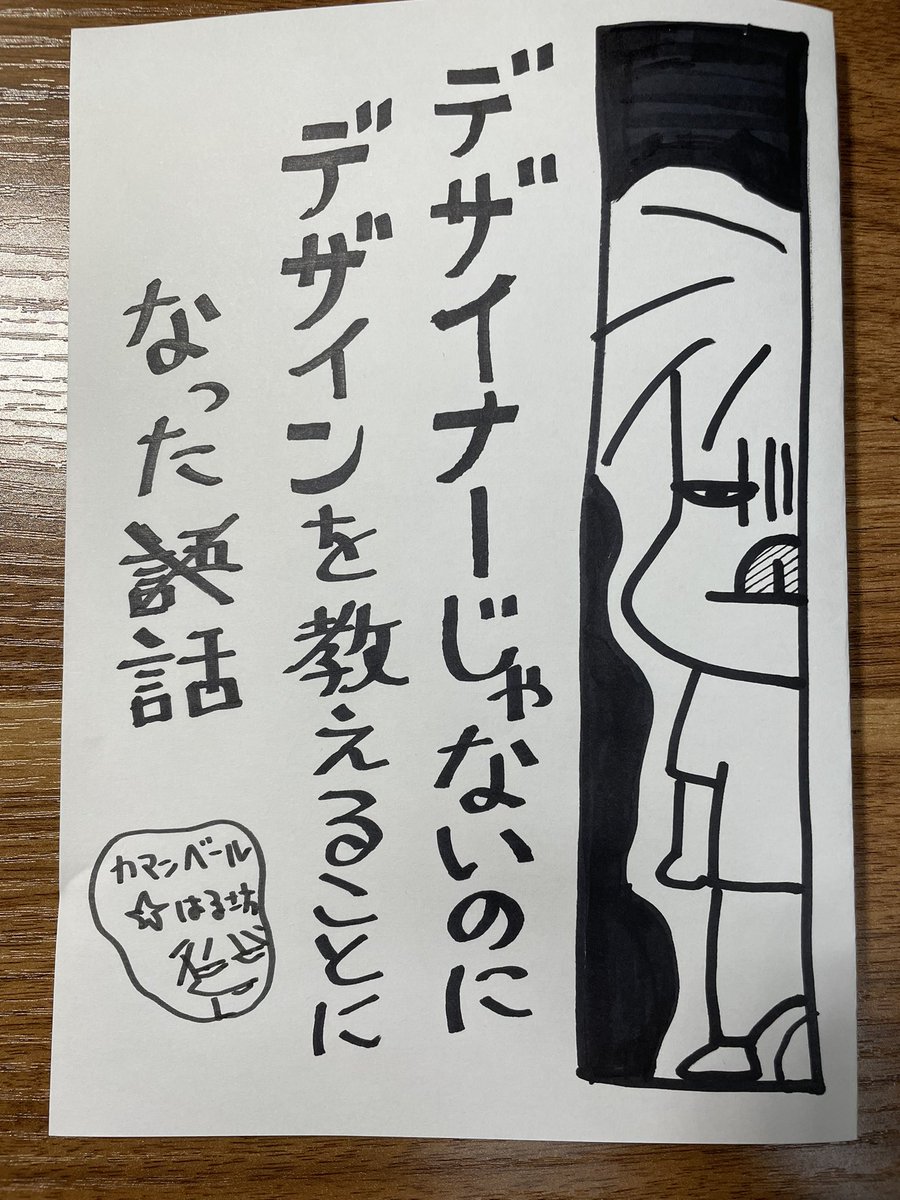 デザイナーじゃないのに
デザインを教えることに
なった話
カマンベール
☆はる坊